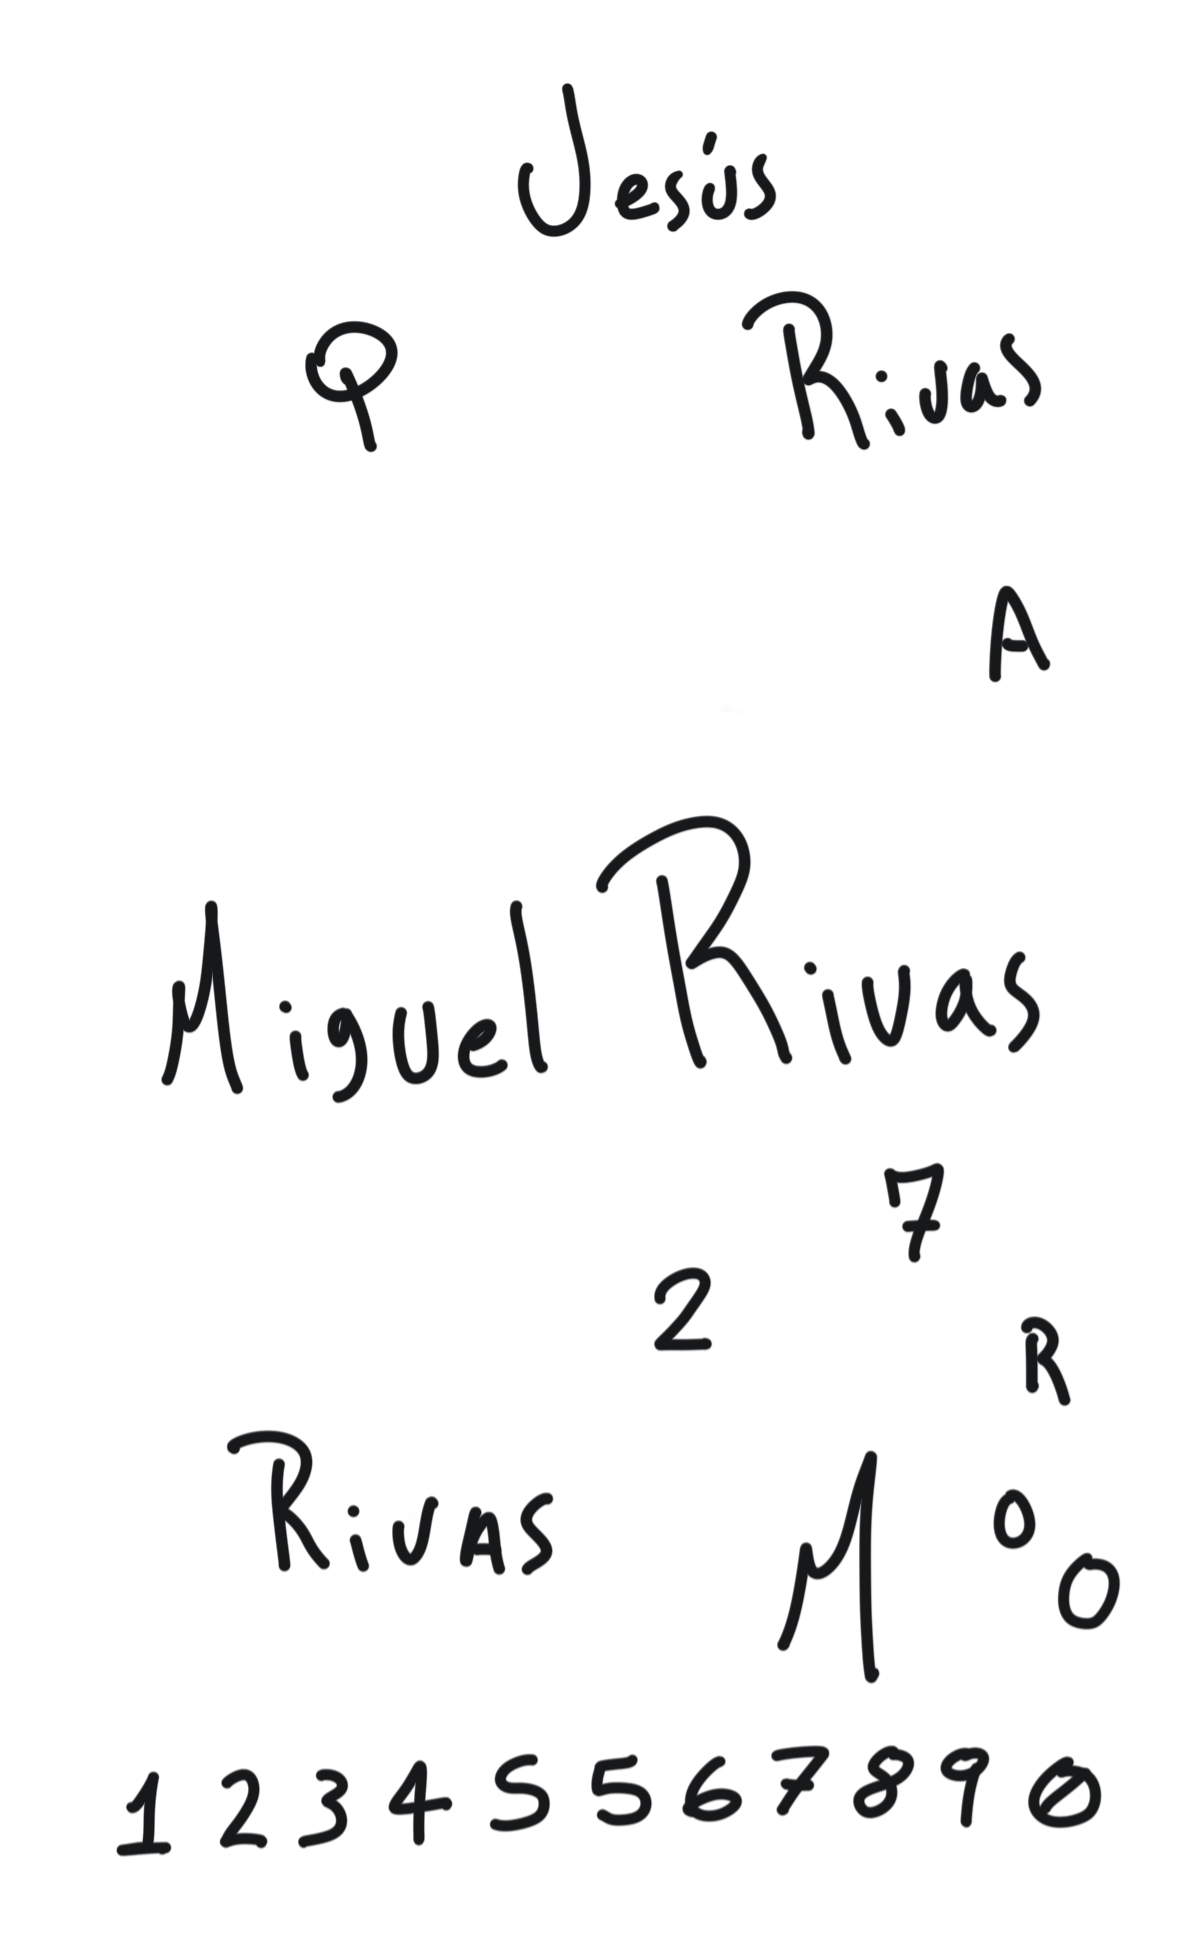 Jesús
Q Rivas
A
Miguel Rivas
7
2
R
Rivas M 0
O
1 2 3 4 S 5 6 7 8 9 0